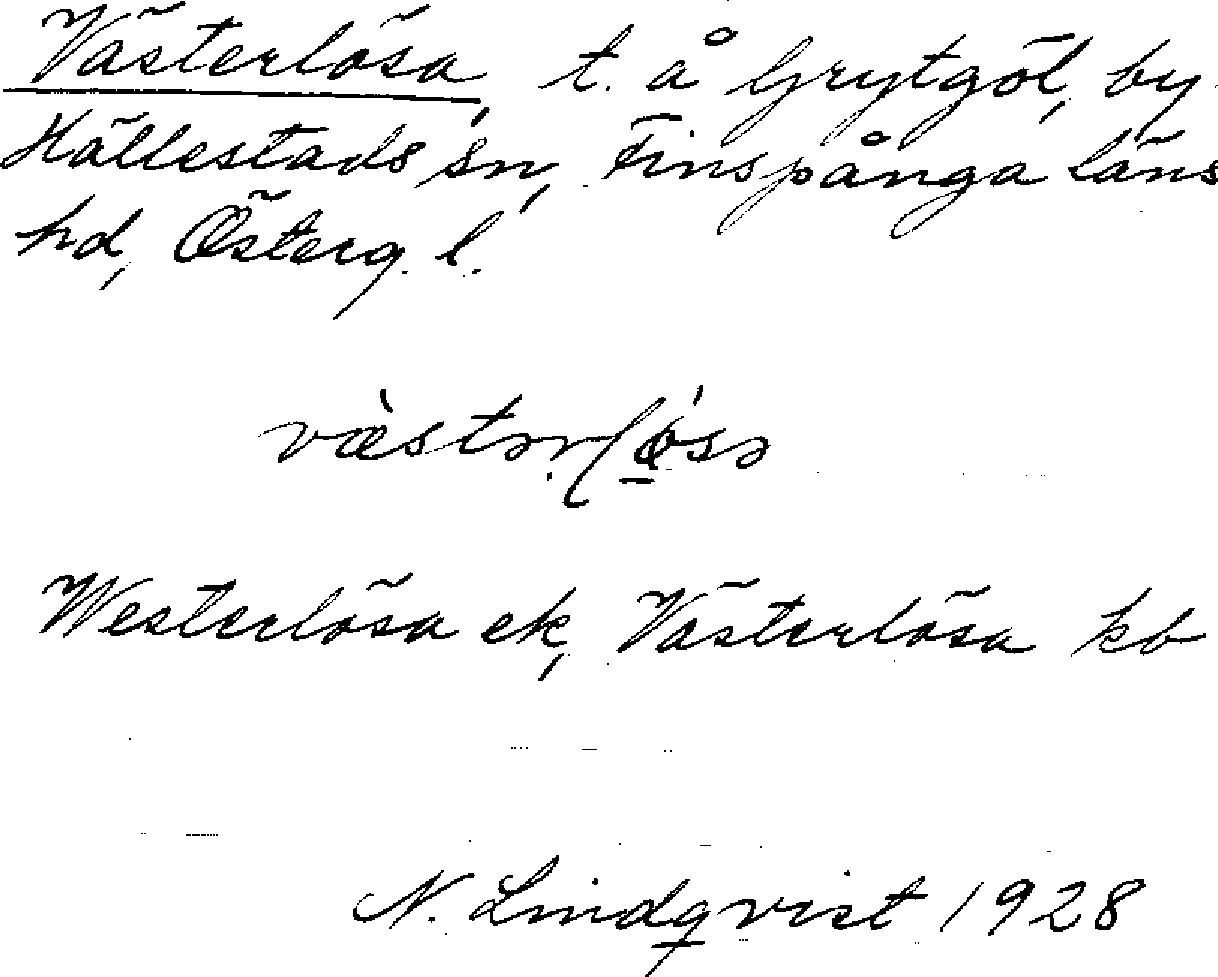 Västerlösa, t. å Grytgöl, by
Hällestads sn, Finspånga läns
hd, Österg. l.
Westerlösa ek, Västerlösa kb
N. Lindqvist 1928